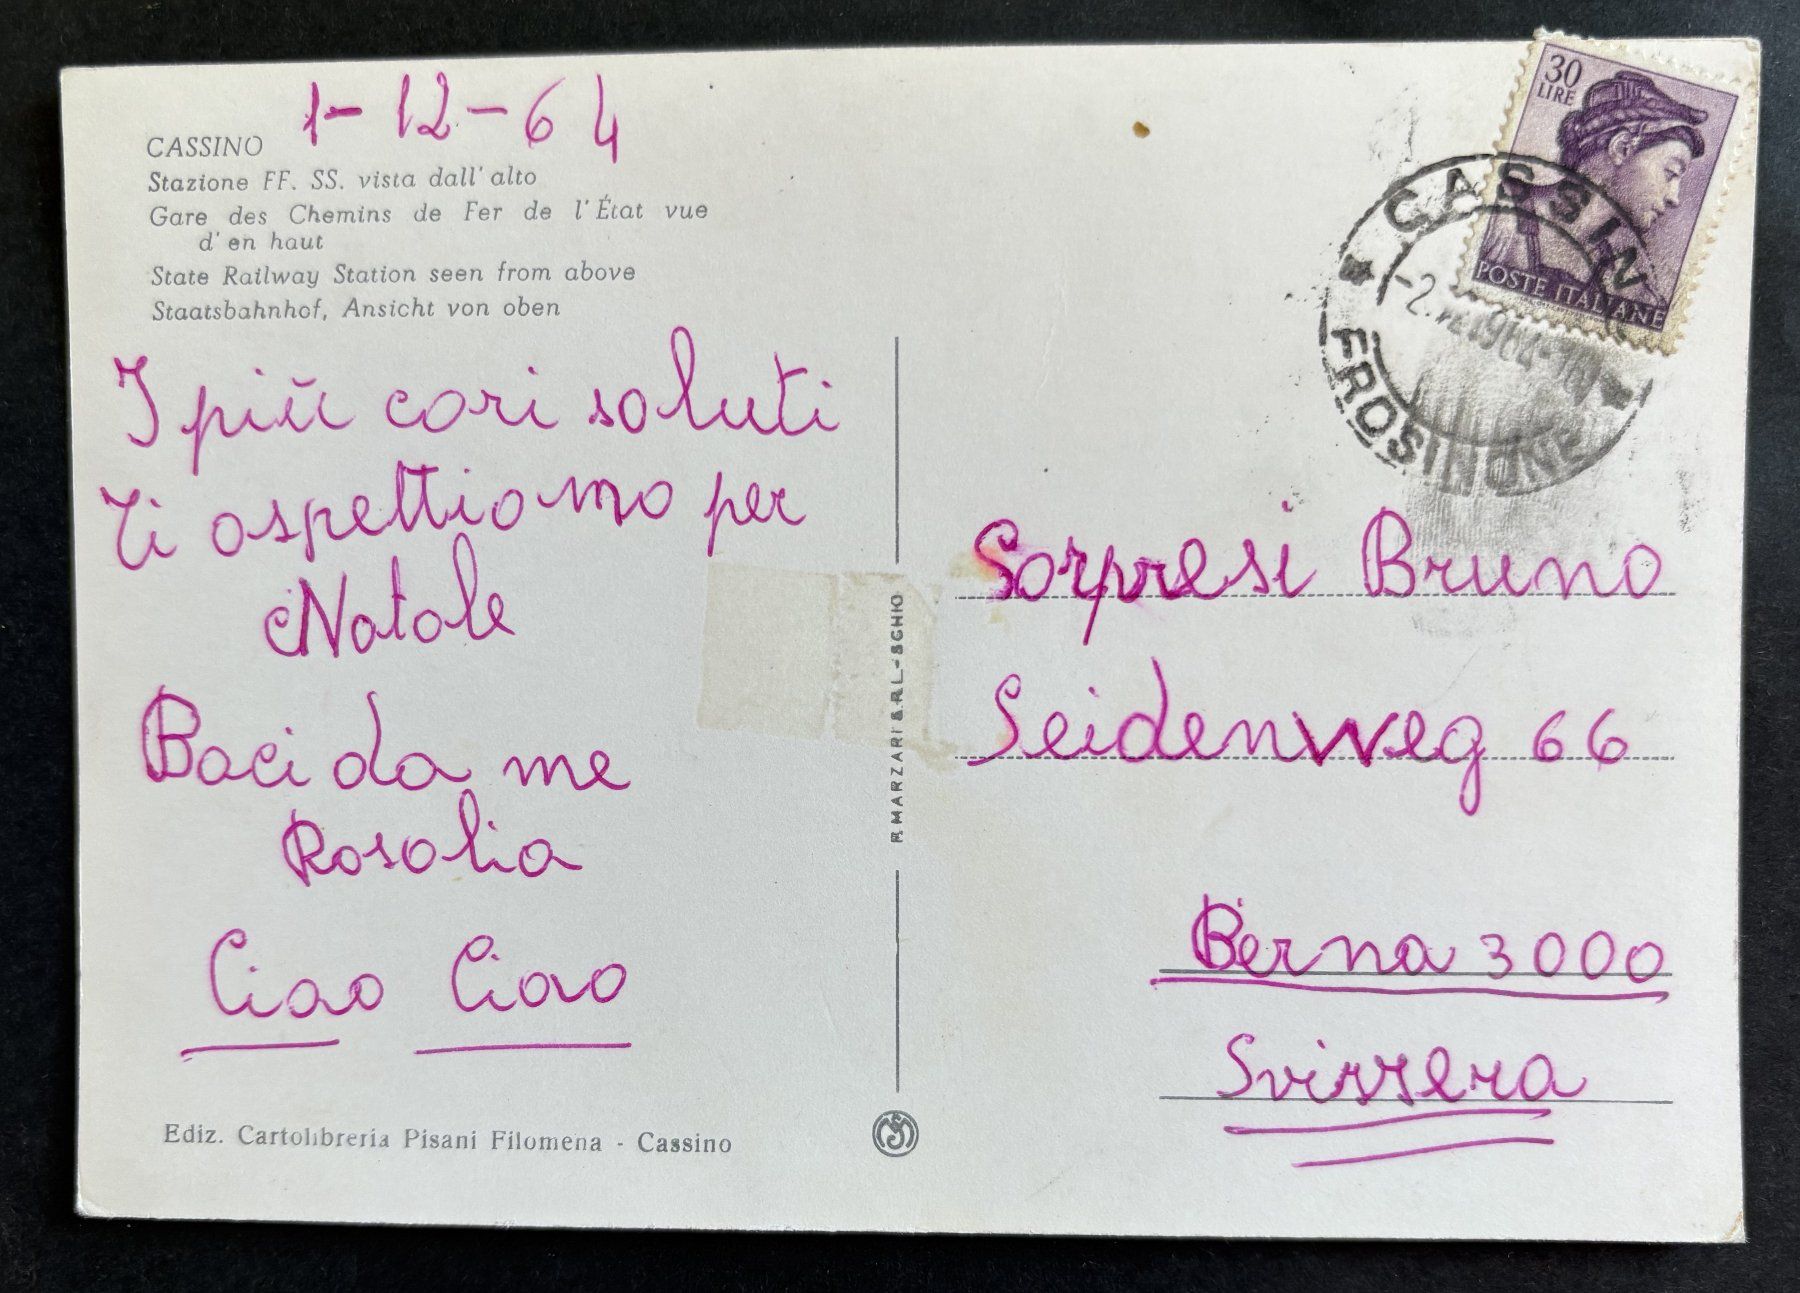 1-12-64
CASSINO
Stazione FF. SS. vista dall' alto
Gare des Chemins de Fer de l'État vue
d' en haut
State Railway Station seen from above
Staatsbahnhof, Ansicht von oben
I più cari saluti
Ti aspettiamo per
Natale
Baci da me
Rosalia
Ciao Ciao
Ediz. Cartolibreria Pisani Filomena - Cassino
R. MARZARI S.R.L. - SCHIO
30
LIRE
POSTE ITALIANE
CASSIN
1964
FROSINONE
Sorpresi Bruno
Seidenweg 66
Berna 3000
Svizzera